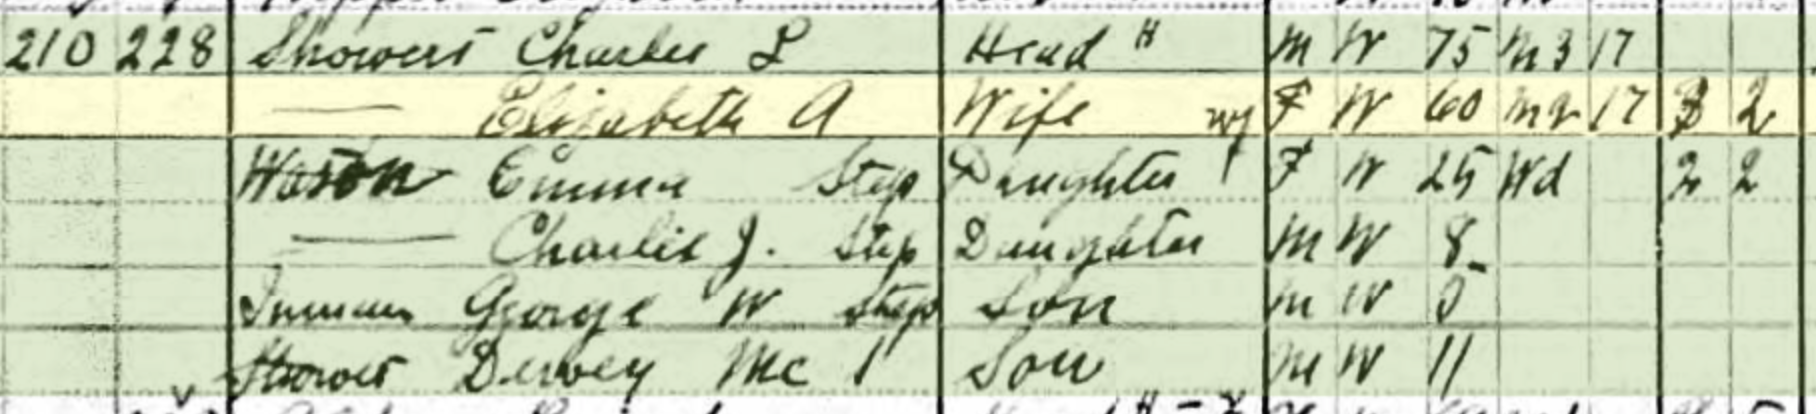 210 228 Showers Charles L Head H M W 75 M3 17
— Elizabeth A Wife W F W 60 M2 17 3 2
Emma Step Daughter F W 25 Wd 2 2
— Charlie J. Step Daughter M W 8
Inman George W Step Son M W 5
Shower Dewey Mc Son M W 11